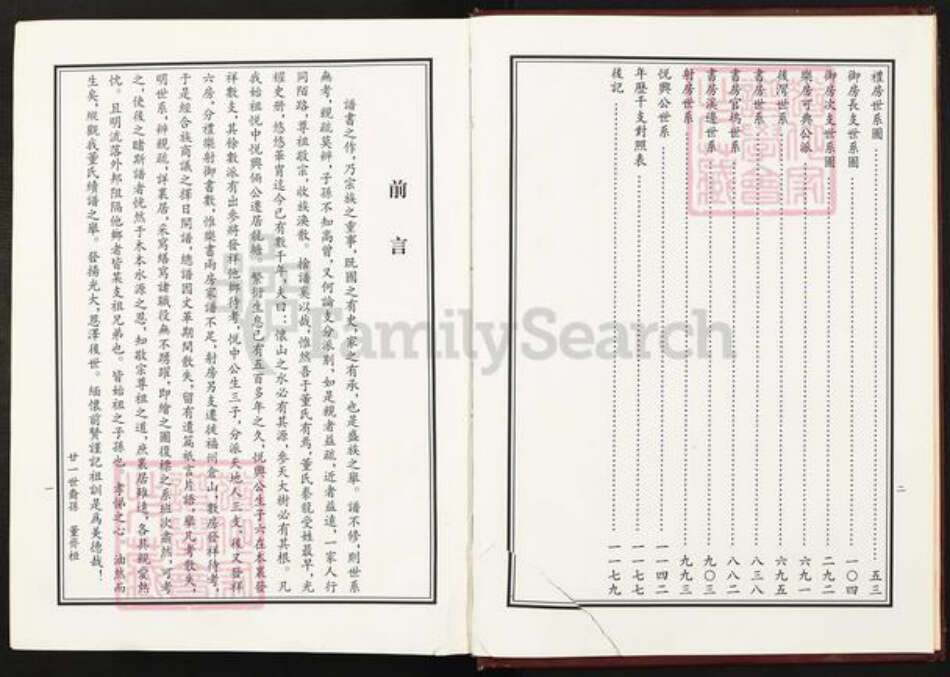 禮房世系圖 五三
御房長支世系圖 一〇四
御房次支世系圖 二九二
樂房可典公派 六九一
後灣世系 六九五
書房世系 八三八
書房官塢世系 八八二
書房溪邊世系 九〇三
射房世系 九九三
悅興公世系 一一四二
年歷干支對照表 一一七七
後記 一一七九
二
前言
譜書之作，乃宗族之重事，既國之有史，家之有承，也是盛族之舉。譜不修，則世系
無考，親疏莫辨，子孫不知高曾，又何論支分派別，如是親者益疏，近者益遠，一家人行
同陌路，尊祖敬宗，收族渙散。捨譜莫以哉，惟然吾于董氏有焉，董氏豢龍受姓最早，光
耀史册，悠悠華胄迄今已有數千年，夫曰：懷山之水必有其源，參天大樹必有其根。凡
我始祖悅中悅興倆公遷居龍塘。繁衍生息已有五百多年之久，悅興公生子六在本裏發
祥數支，其餘數派有出參將發祥他鄉待考，悅中公生三子，分派天地人三支，後又發祥
六房，分禮樂射御書數，惟樂書兩房家譜不足，射房另支遷徙福州倉山，數房發祥待考，
于是經合族商議之擇日開譜，總譜因文革期間散失，留有遺篇祇言片語，舉凡考散失，
明世系，辨親疏，詳裏居，采寫繕寫諸職役無不踴躍，即繪之圖復標之系班次肅然，可考
之，使後之睹斯譜者恍然于木本水源之思，知敬宗尊祖之道，庶裏居雖遠，各具親愛熱
忱。且明流落外邦阻隔他鄉者皆某支祖兄弟也。皆始祖之子孫也 孝悌之心 油然而
生矣，縱觀我董氏續譜之舉。發揚光大，恩澤後世。緬懷前賢謹記祖訓是爲美德哉！
廿一世裔孫 董
一
FamilySearch